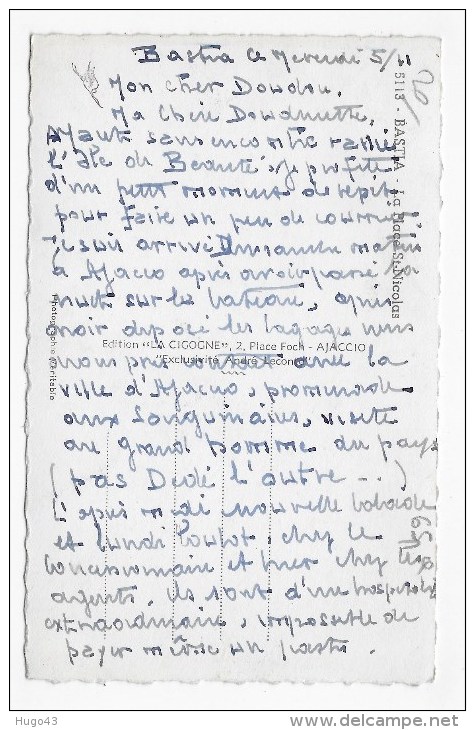 Bastia ce Mercredi 5/11
Mon cher Doudou.
Ma Chère Doudounette.
Ayant sans encombre rallié
l'Ile de Beauté, je profite
d'un petit moment de répit
pour faire un peu de courrier
Je suis arrivé Dimanche matin
à Ajaccio après avoir passé la
nuit sur le bateau, après
avoir déposé les bagages nous
avons pris contact avec la
ville d'Ajaccio, promenade
aux Sanguinaires, visite
au grand homme du pays
(pas Dédé l'autre ...)
L'après midi nouvelle balade
et lundi boulot, chez le
concessionnaire et hier chez les
agents. Ils sont d'une hospitalité
extraordinaire, impossible de
payer même un pastis.
5113 - BASTIA - La Place St-Nicolas
Photographie Véritable
Edition "LA CIGOGNE", 2, Place Foch - AJACCIO
"Exclusivité André Leconte"
Hugo43
www.delcampe.net